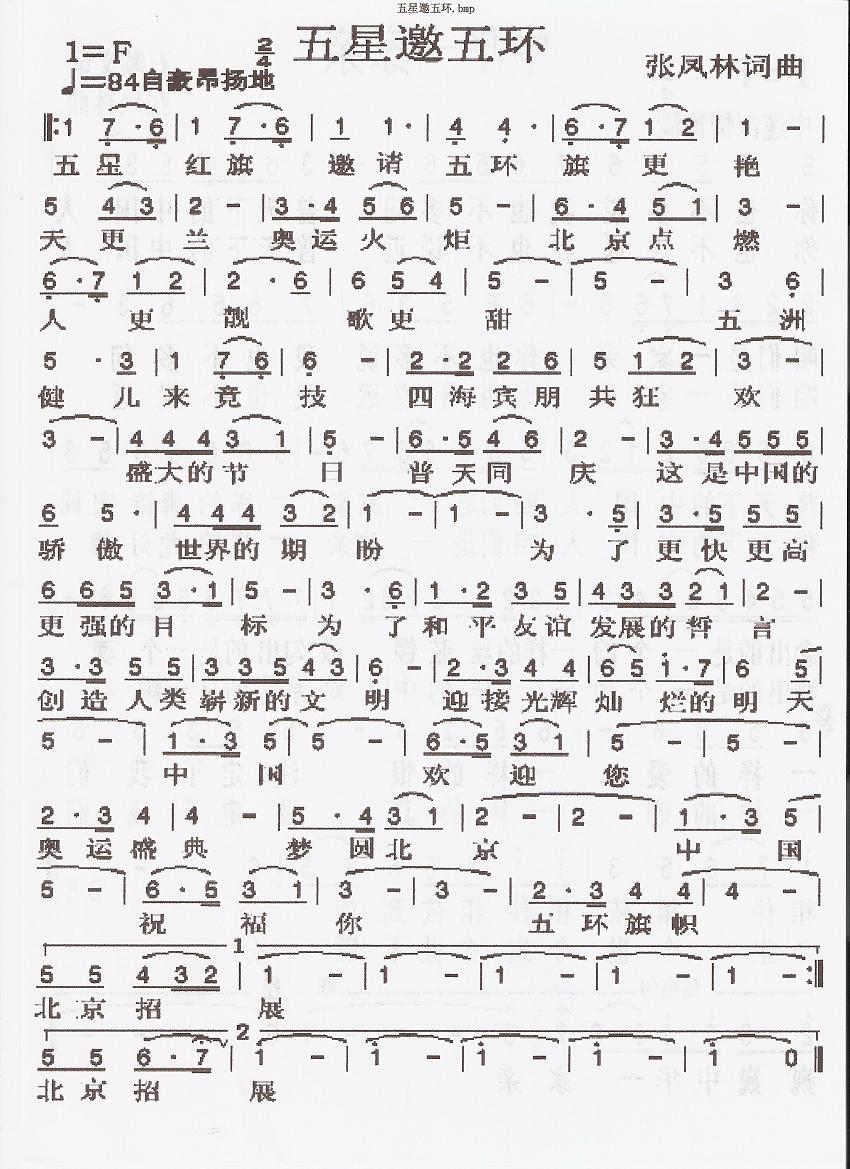 五星邀五环.bmp
1=F 2/4 五星邀五环
♩=84自豪昂扬地 张凤林词曲
‖: 1 7·6 | 1 7·6 | 1 1· | 4 4· | 6·7 12 | 1 - |
五星 红旗 邀请 五环 旗更 艳
5 43 | 2 - | 3·4 56 | 5 - | 6·4 51 | 3 - |
天更 兰 奥运火 炬 北京点 燃
6·7 12 | 2·6 | 6 54 | 5 - | 5 - | 3 6 |
人更 靓 歌更 甜 五洲
5·3 | 1 76 | 6 - | 2·2 26 | 5 12 | 3 - |
健儿来竟 技 四海宾朋共狂 欢
3 - | 444 31 | 5 - | 6·5 46 | 2 - | 3·4 555 |
盛大的节 日 普天同 庆 这是中国的
6 5· | 444 32 | 1 - | 1 - | 3·5 | 55 55 |
骄傲 世界的期 盼 为了更快更高
665 3·1 | 5 - | 3·6 | 1·2 35 | 433 21 | 2 - |
更强的目 标 为了和平友谊发展的誓 言
3·3 55 | 335 43 | 6 - | 2·3 44 | 65 1·7 | 5
创造人类崭新的文 明 迎接光辉灿烂的明天
5 - | 1·3 5 | 5 - | 6·5 31 | 5 - | 5 - |
中国 欢迎 您
2·3 4 | 4 - | 5·4 31 | 2 - | 2 - | 1·3 5 |
奥运盛典 梦圆北 京 中国
5 - | 6·5 31 | 3 - | 3 - | 2·3 44 | 4 - |
祝福你 五环旗帜
1
5 5 432 | 1 - | 1 - | 1 - | 1 - | 1 - :‖
北京招 展
2
5 5 6·7 | 1 - | 1 - | 1 - | 1 - | 1 0 ‖
北京招 展